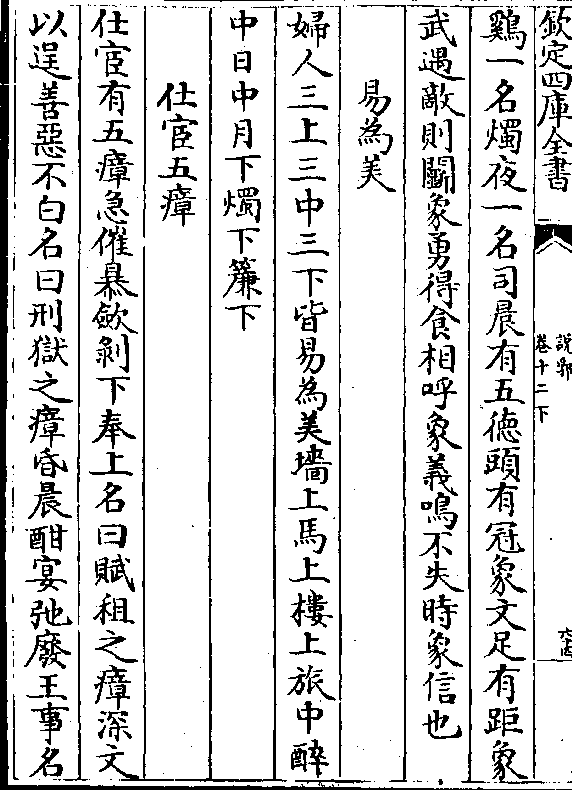 欽定四庫全書
說郛
卷十二下
鷄一名燭夜一名司晨有五徳頭有冠象文足有距象
武遇敵則鬬象勇得食相呼象義鳴不失時象信也
易為美
婦人三上三中三下皆易為美墻上馬上樓上旅中醉
中日中月下燭下簾下
仕宦五瘴
仕宦有五瘴急催暴斂剝下奉上名曰賦租之瘴深文
以逞善惡不白名曰刑獄之瘴昏晨酣宴弛廢王事名